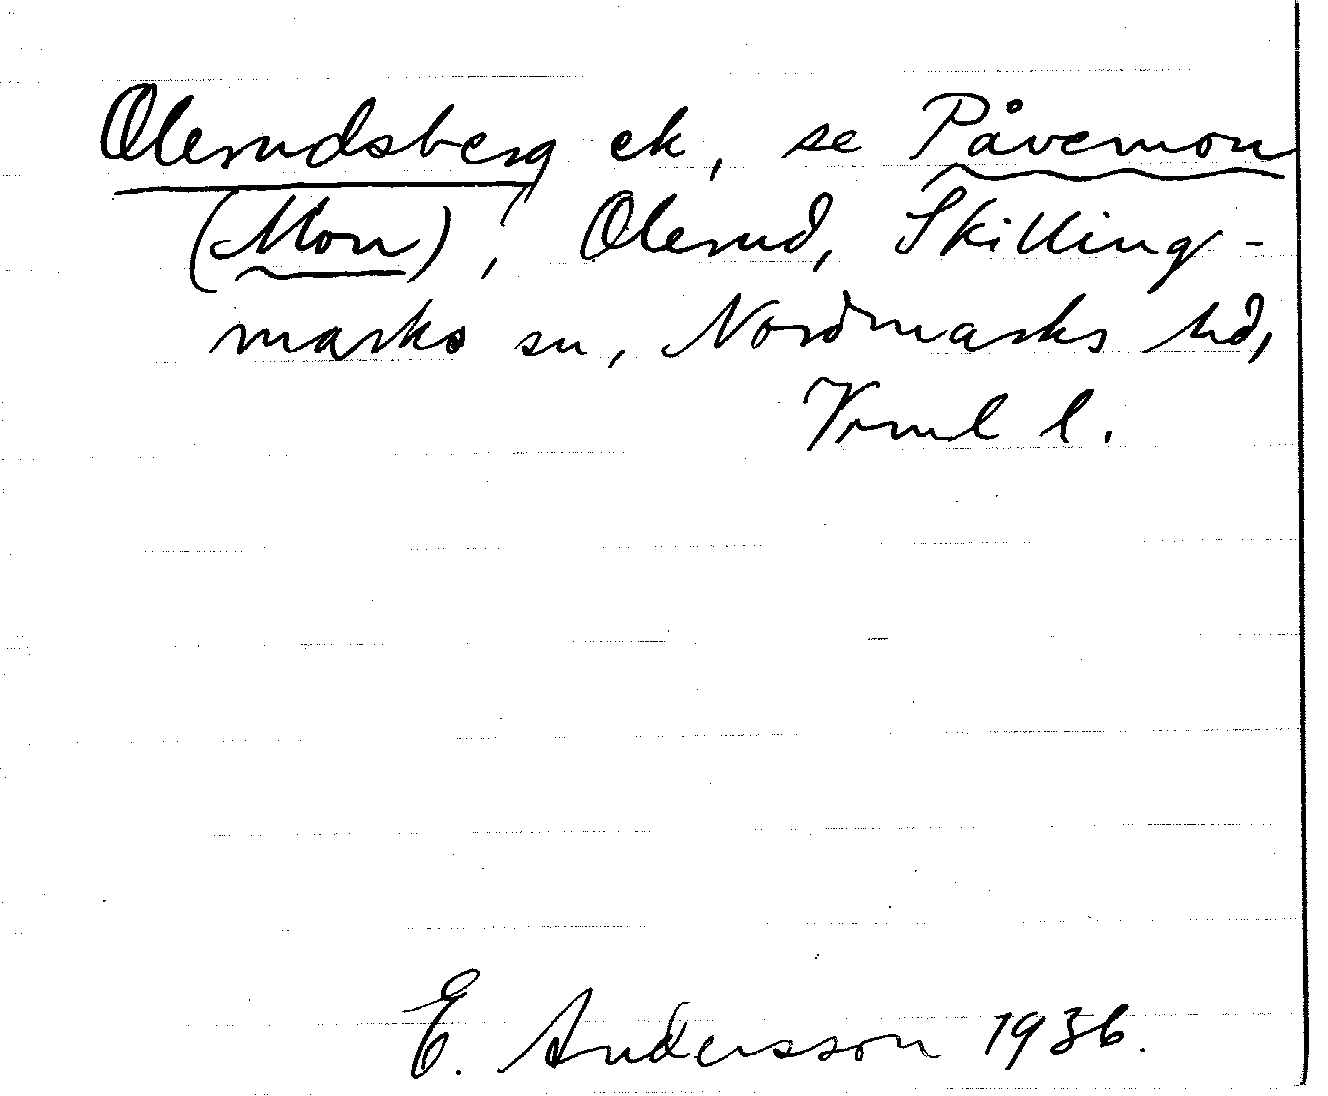 Olerudsberg ek, se Påvemon
(Mon), Olerud, Skilling-
marks sn, Nordmarks hd,
Vrml l.
E. Andersson 1936.